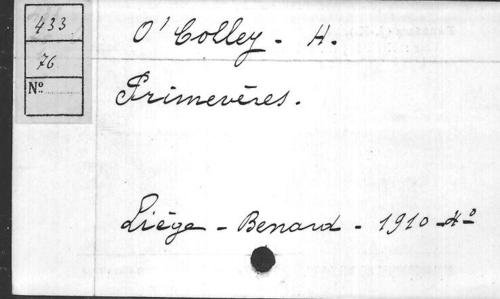 433
76
Nº
O'Colley - H.
Primevères.
Liége - Benard - 1910 - 4º